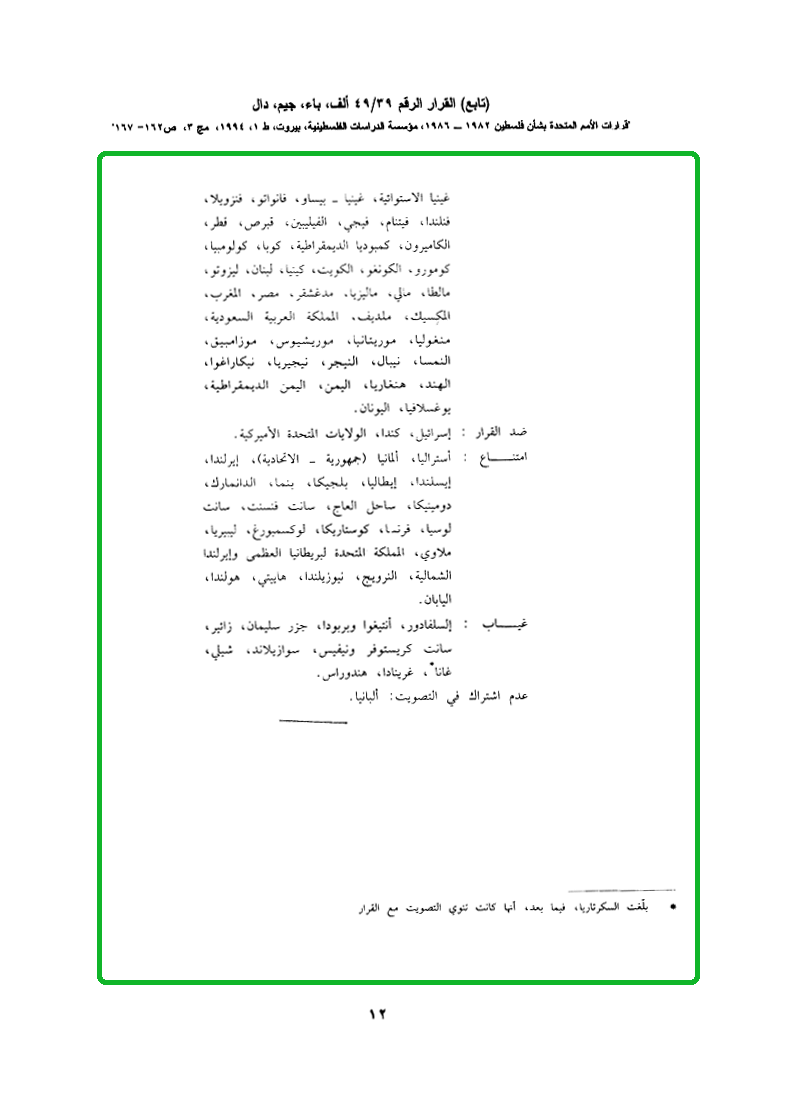 (تابع) القرار الرقم ٤٩/٣٩ ألف، باء، جيم، دال
"قرارات الأمم المتحدة بشأن فلسطين ١٩٨٢ ــ ١٩٨٦، مؤسسة الدراسات الفلسطينية، بيروت، ط ١، ١٩٩٤، مج ٣، ص١٦٢- ١٦٧"
غينيا الاستوائية، غينيا ـ بيساو، فانواتو، فنزويلا،
فنلندا، فيتنام، فيجي، الفيليبين، قبرص، قطر،
الكاميرون، كمبوديا الديمقراطية، كوبا، كولومبيا،
كومورو، الكونغو، الكويت، كينيا، لبنان، ليزوتو،
مالطا، مالي، ماليزيا، مدغشقر، مصر، المغرب،
المكسيك، ملديف، المملكة العربية السعودية،
منغوليا، موريتانيا، موريشيوس، موزامبيق،
النمسا، نيبال، النيجر، نيجيريا، نيكاراغوا،
الهند، هنغاريا، اليمن، اليمن الديمقراطية،
يوغسلافيا، اليونان.
ضد القرار : إسرائيل، كندا، الولايات المتحدة الأميركية.
امتنـــــاع : أستراليا، ألمانيا (جمهورية ـ الاتحادية)، إيرلندا،
إيسلندا، إيطاليا، بلجيكا، بنما، الدانمارك،
دومينيكا، ساحل العاج، سانت فنسنت، سانت
لوسيا، فرنسا، كوستاريكا، لوكسمبورغ، ليبيريا،
ملاوي، المملكة المتحدة لبريطانيا العظمى وإيرلندا
الشمالية، النرويج، نيوزيلندا، هاييتي، هولندا،
اليابان.
غيـــــاب : إلسلفادور، أنتيغوا وبربودا، جزر سليمان، زائير،
سانت كريستوفر ونيفيس، سوازيلاند، شيلي،
غانا*، غرينادا، هندوراس.
عدم اشتراك في التصويت: ألبانيا.
• بلّغت السكرتاريا، فيما بعد، أنها كانت تنوي التصويت مع القرار
١٢